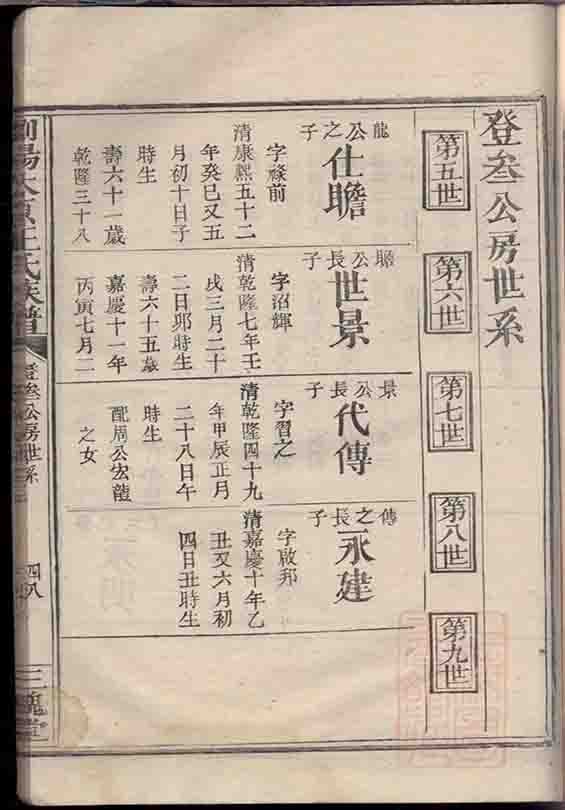 登叄公房世系
第五世
第六世
第七世
第八世
第九世
龍公之子
仕瞻
字祿前
清康熙五十二
年癸巳又五
月初十日子
時生
壽六十一歲
乾隆三十八
瞻公長子
世景
字沼輝
清乾隆七年壬
戌三月二十
二日卯時生
壽六十五歲
嘉慶十一年
丙寅七月二
景公長子
代傳
字習之
清乾隆四十九
年甲辰正月
二十八日午
時生
配周公宏
之女
傳之長子
永建
字啟邦
清嘉慶十年乙
丑又六月初
四日丑時生
王氏族譜
登叄公房世系
四八
三槐堂